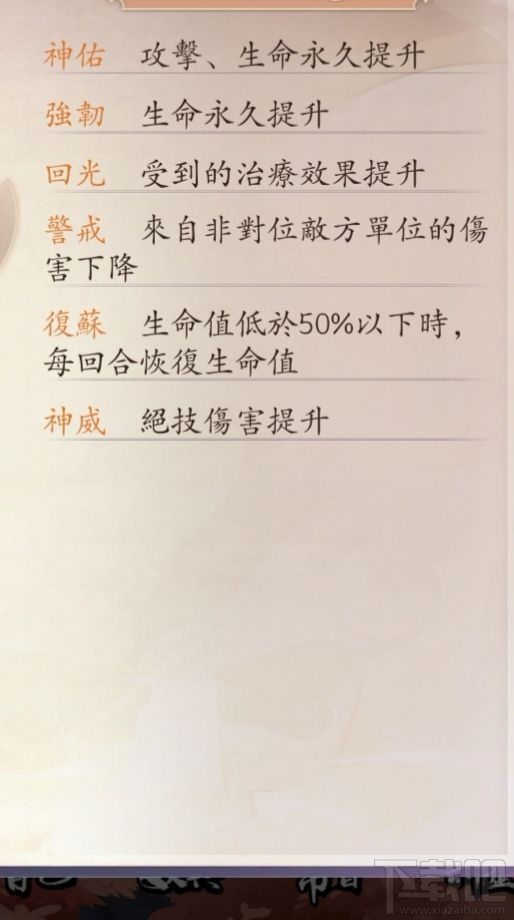 神佑 攻擊、生命永久提升
強韌 生命永久提升
回光 受到的治療效果提升
警戒 來自非對位敵方單位的傷
害下降
復蘇 生命值低於50%以下時，
每回合恢復生命值
神威 絕技傷害提升
下载吧
www.xiazaiba.com